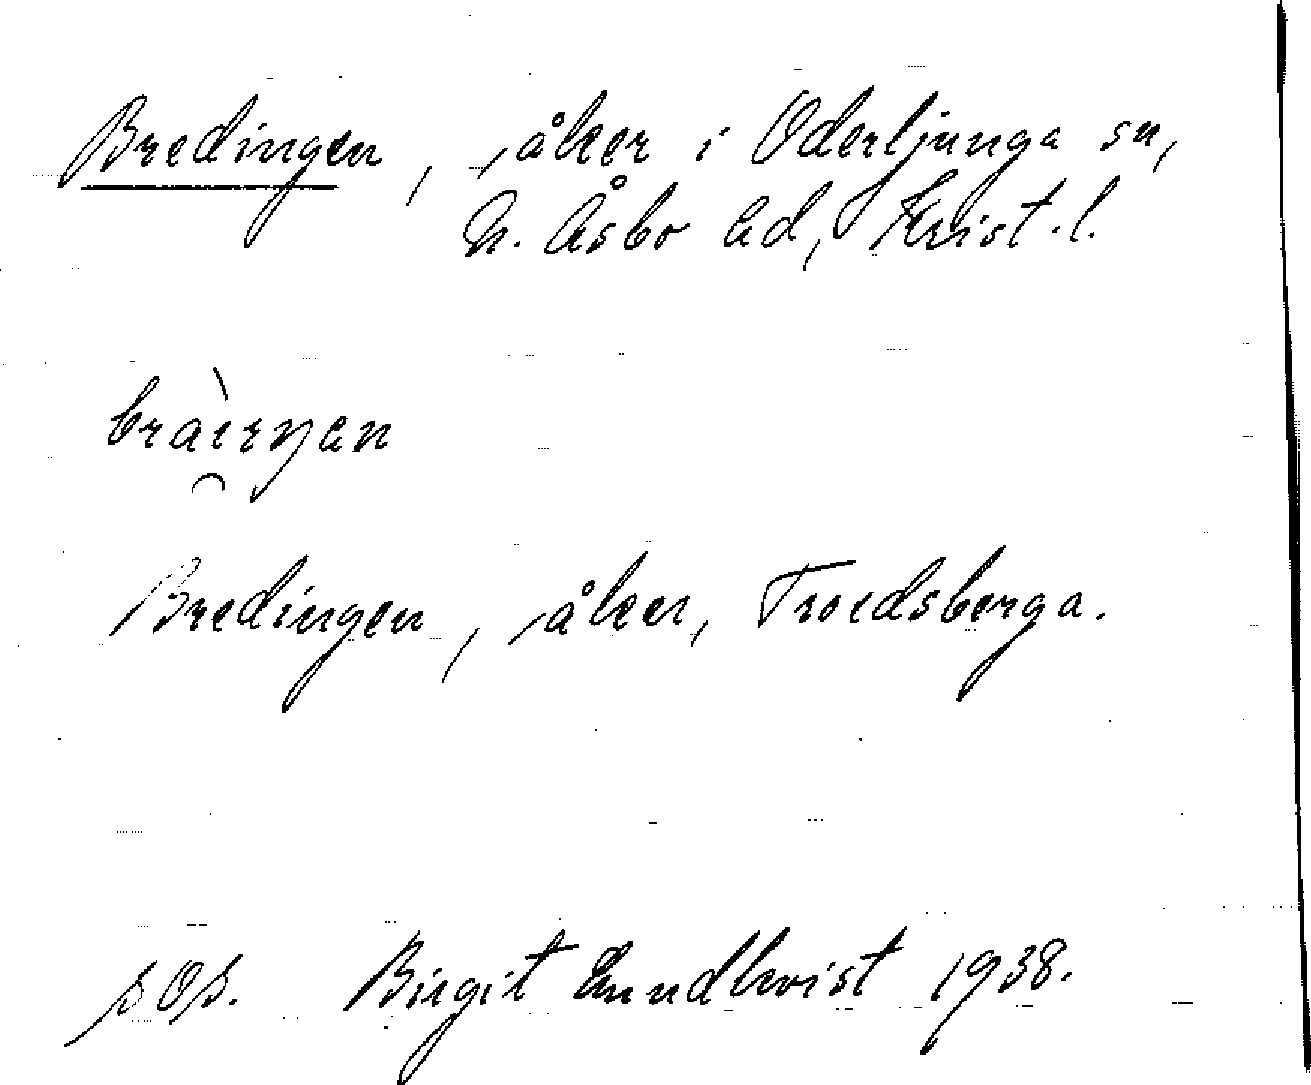 Bredingen, åker i Oderljunga sn,
N. Åsbo hd, Krist. l.
Bredingen, åker, Troedsberga.
s. O. s. Birgit Lundkvist 1938.